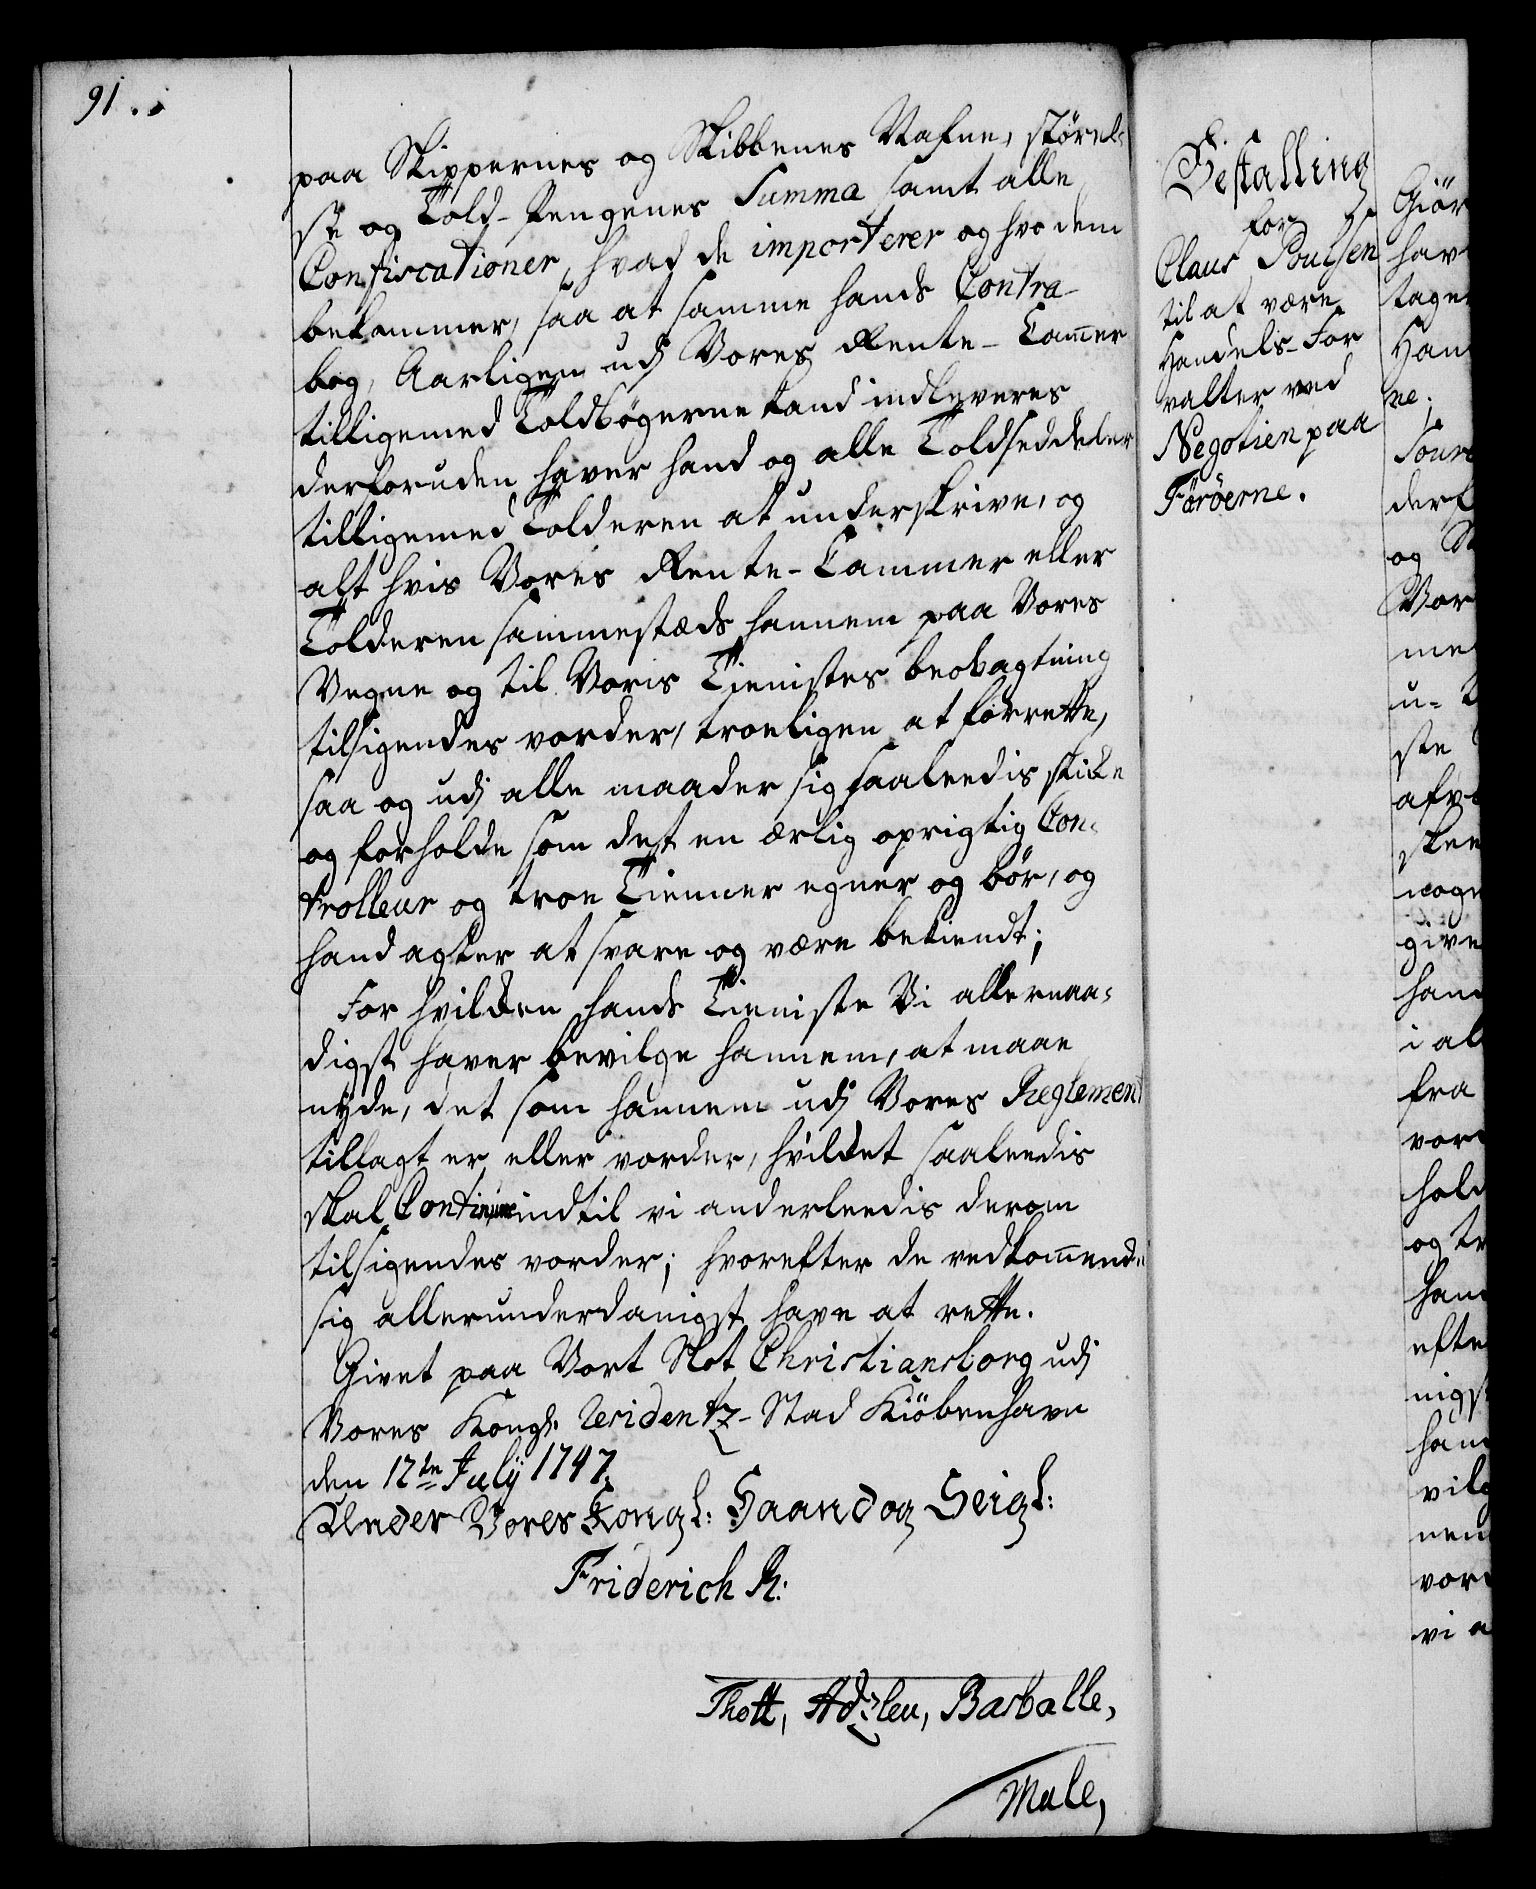 91.
paa Skippernes og Skibbenes Nafne, størel-
se og Told-Pengenes Summa samt alle
Confiscationer, hvad de importerer og hvo dem
bekommer, saa at samme hands Contra-
bog, Aarligen udj Vores Rente-Camer
tilligemed Toldbøgerne kand indleveres
derforuden haver hand og alle Toldseddeler
tilligemed Tolderen at underskrive, og
alt hvis Vores Rente-Cammer eller
Tolderen sammestæds hannem paa Vores
Vegne og til Voris Tienistes beobagtning
tilsigendes vorder, troeligen at forrette,
saa og udj alle maader sig saaleedis skike
og forholde som det en ærlig oprigtig Con-
trolleur og troe Tienner egner og bør, og
hand agter at svare og være bekiendt;
For hvilken hands Tieniste Vi allernaa-
digst haver bevilge hannem, at maae
nyde, det som hannem udj Vores Reglement
tillagt er eller vorder, hvilket saaleedis
skal Continuere indtil vi anderleedis derom
tilsigendes vorder; hvorefter de vedkomend:
sig allerunderdanigst have at rette.
Givet paa Vort Slot Christiansborg udj
Vores Kongl: Residentz-Stad Kiöbenhavn
den 17de July 1747.
Under Vores Kongl: Haand og Seigl:
Friderich R:
Thott, Adzleu, Barballe,
Male,
Bestalling
for
Claus Poulsen
til at være
Handels-For
valter ved
Negotien paa
Færøerne.
Giör
hav
tage
Han
ne;
Tour
derf
og S
Vor
me
u-
ste
afv
skee
noge
give
han
i al
fra
vor
hold
og tr
han
efte
nigs
ham
vilg
nem
vor
vi a